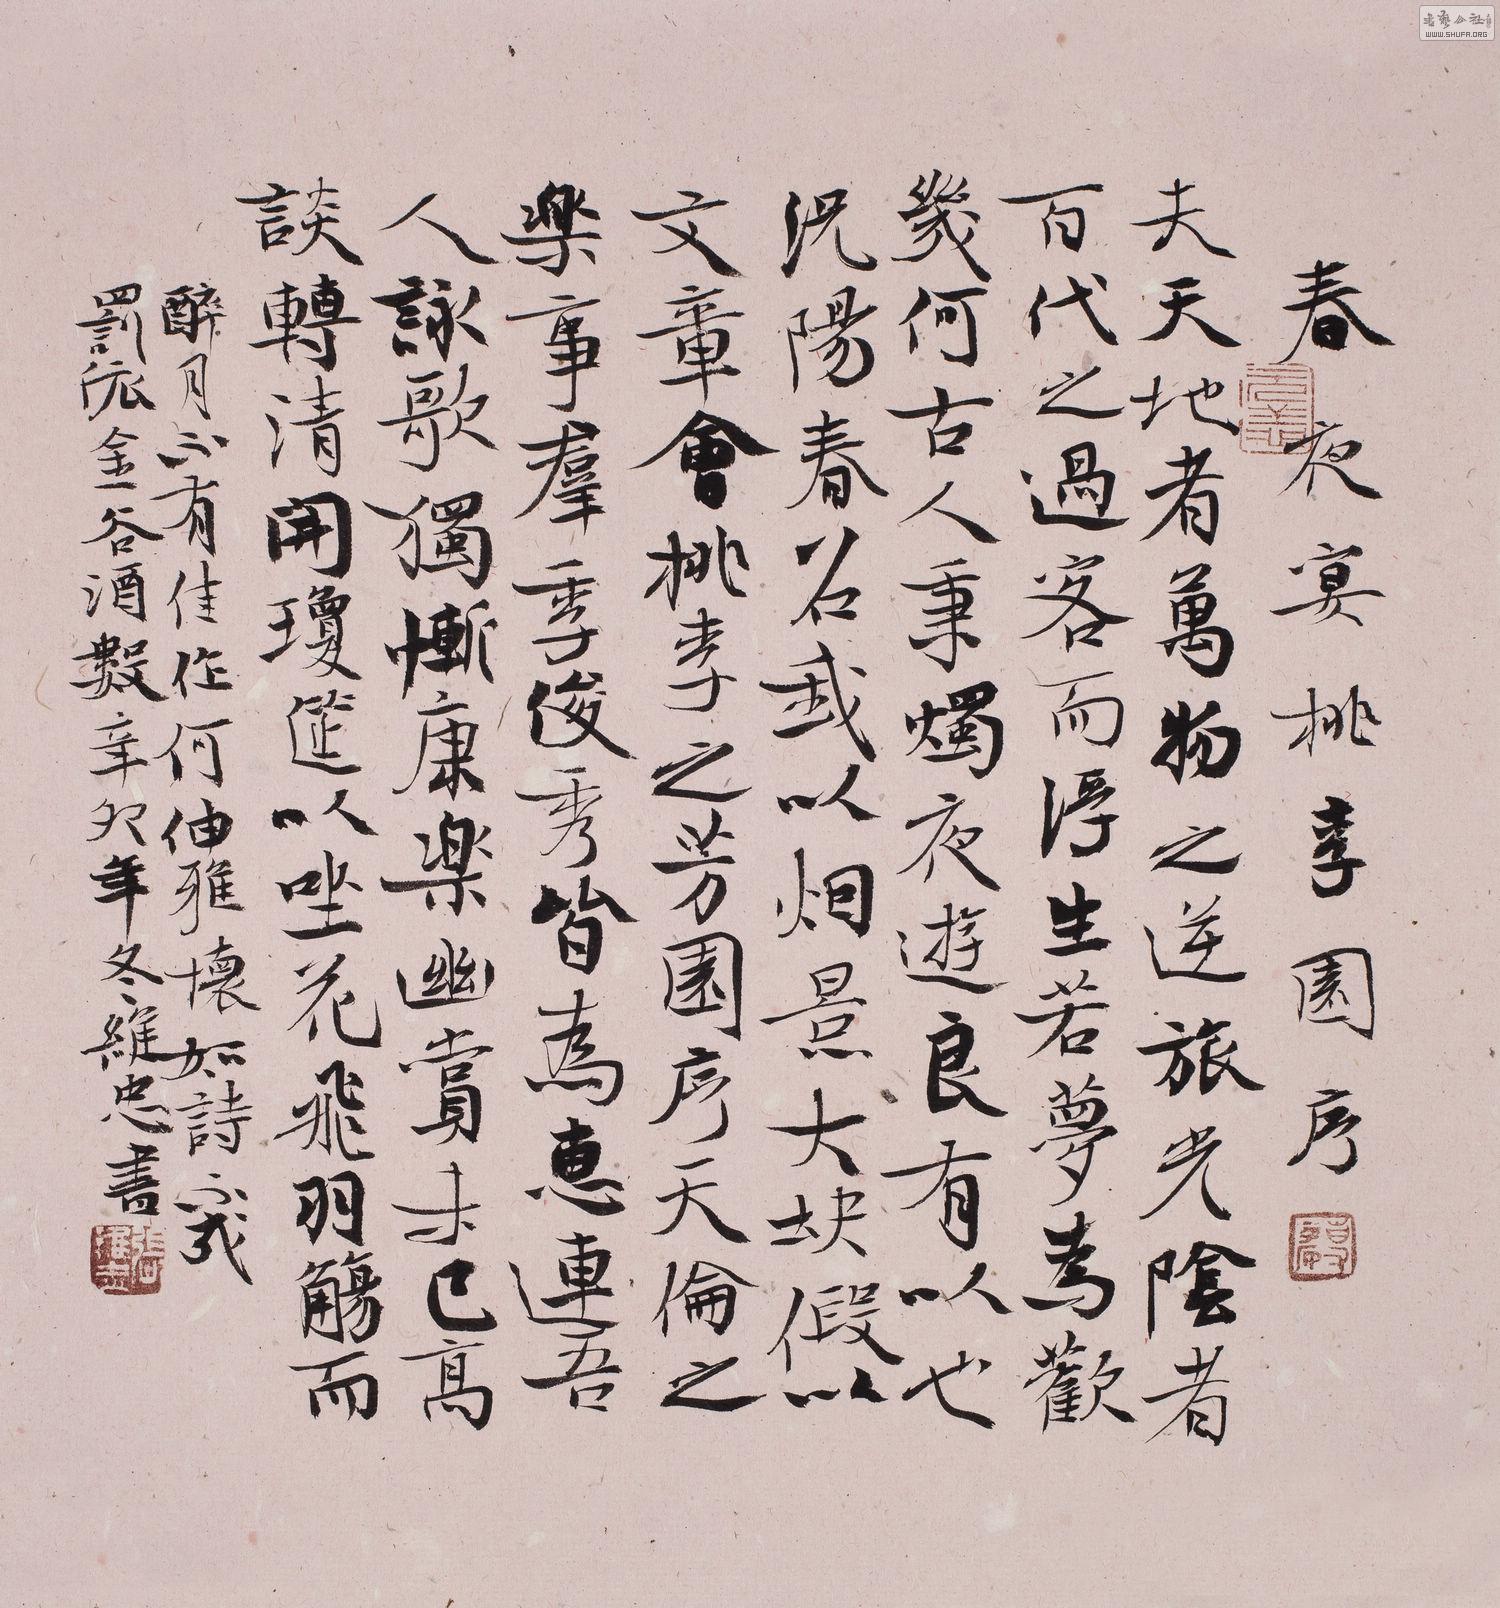 春夜宴桃李園序
夫天地者萬物之逆旅光陰者
百代之過客而浮生若夢為歡
幾何古人秉燭夜遊良有以也
況陽春召我以烟景大块假以
文章會桃李之芳園序天倫之
樂事羣季俊秀皆為惠連吾
人詠歌獨慚康樂幽賞未已高
談轉清開瓊筵以坐花飛羽觴而
醉月不有佳作何伸雅懷如詩不成
罰依金谷酒數辛卯年冬維忠書
WWW.SHUFA.ORG